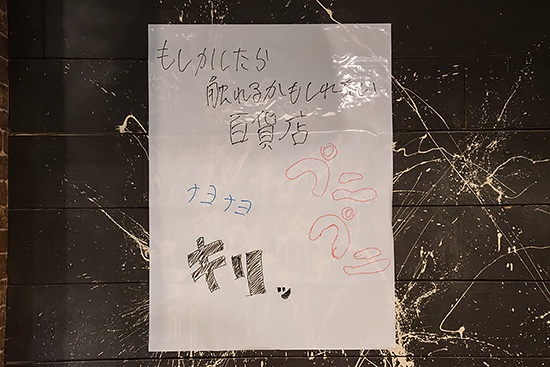 もしかしたら
触れるかもしれない
百貨店
プニ
プニ
ナヨナヨ
キリッ